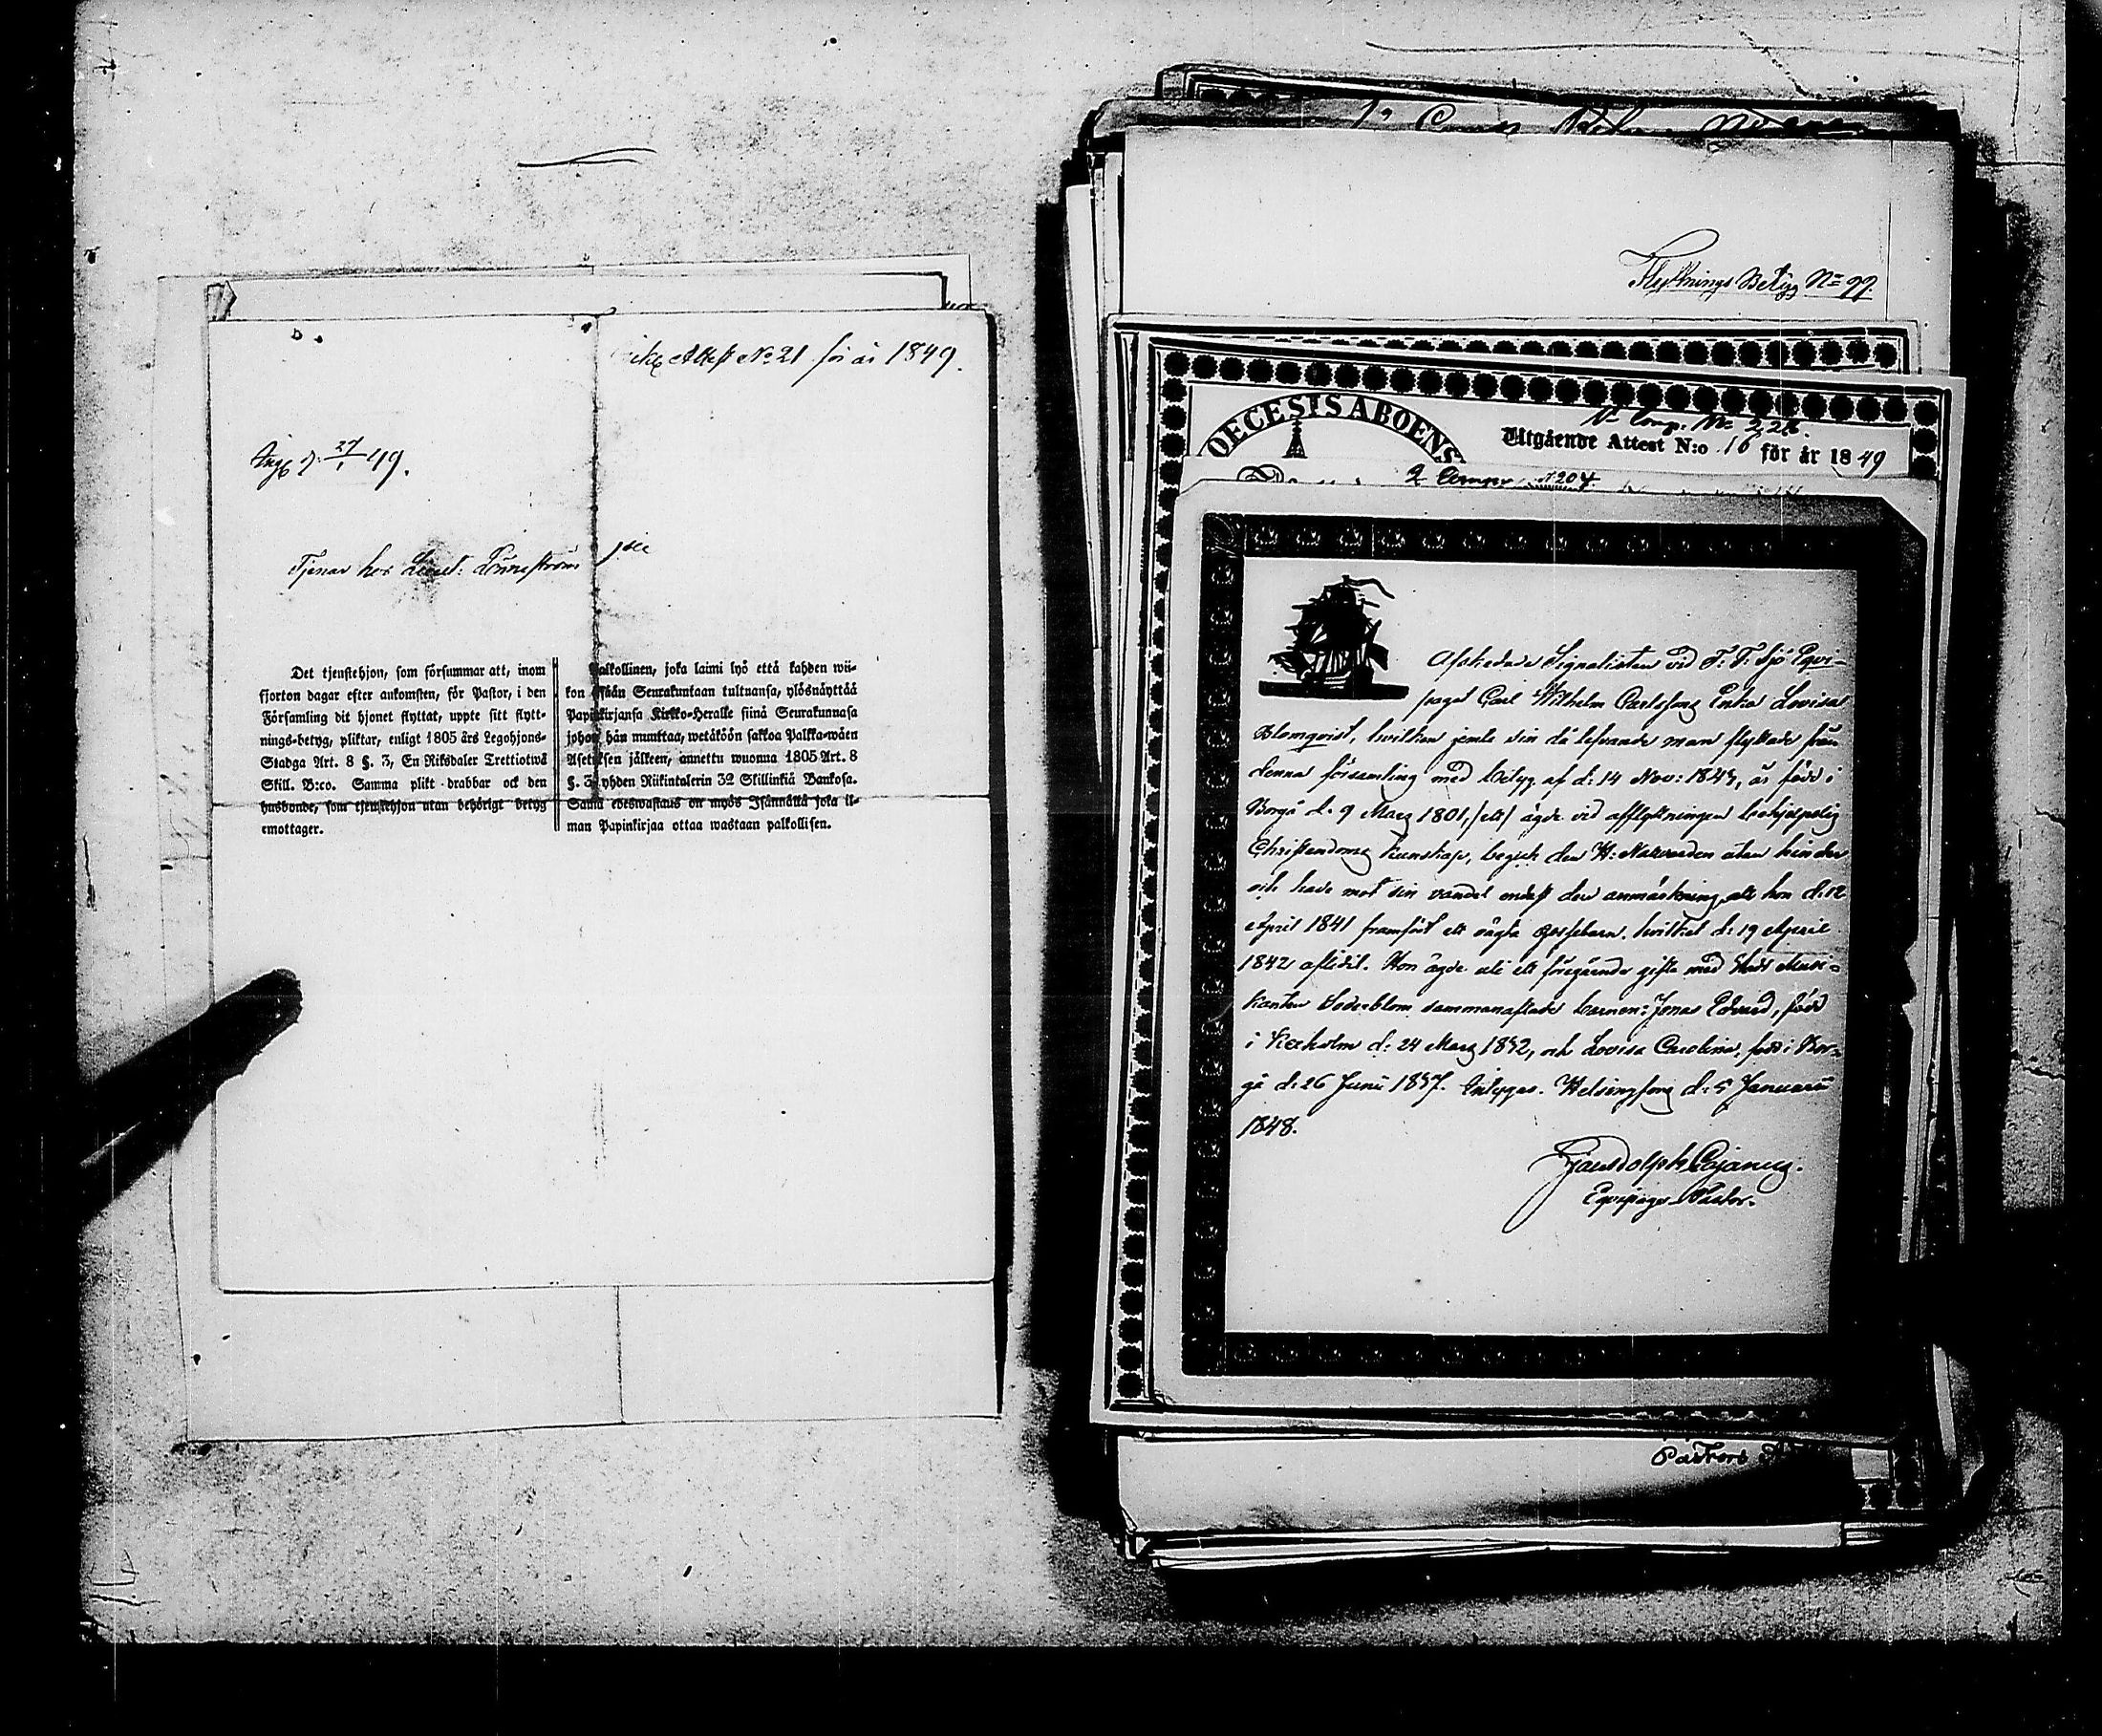 Attest No 21 för år 1849.
Ing. d. 27/1 49.
Tjenar hos Lieut: Lönnström
Det tjenstehjon, som försummar att, inom
fjorton dagar efter ankomsten, för Pastor, i den
Församling dit hjonet flyttat, uppte sitt flytt-
nings-betyg, pliktar, enligt 1805 års Legohjons-
Stadga Art. 8 §. 3, En Riksdaler Trettiotwå
Skill. B:co. Samma plikt drabbar ock den
husbonde, som tjenstehjon utan behörigt betyg
emottager.
Palkollinen, joka laimi lyö että kahden wii-
kon sisään Seurakuntaan tultuansa, ylösnäyttää
Papinkirjansa Kirkko-Heralle siinä Seurakunnasa
johon hän muuttaa, wetäköön sakkoa Palkka-wäen
Asetuksen jälkeen, annettu wuonna 1805 Art. 8
§. 3, yhden Riikintalerin 32 Skillinkiä Bankosa.
Sama edeswastaus on myös Isännällä joka il-
man Papinkirjaa ottaa wastaan palkollisen.
Flyttnings Betyg No 99.
OECESIS ABOENS
No Comp. No 226.
Utgående Attest N:o 16 för år 1849
2 Comp. No 204
Afskedade Signalisten vid F. F. Sjö Eqvi-
paget Carl Wilhelm Carlssons Enka Lovisa
Blomqvist, hvilken jemte sin då lefvande man flyttade från
denna församling med betyg af d: 14 Nov: 1845, är född i
Borgå d. 9 Mars 1801, ägde vid afflyttningen behjelplig
Christendoms kunskap, begick den H: Nattvarden utan hinder
och hade mot sin vandel endast den anmärkning, att hon d: 12
April 1841 framfödt ett oägta gossebarn, hvilket d: 19 April
1842 aflidit. Hon ägde uti ett föregående gifte med Musi-
kanten Söderblom sammanaflade barnen: Jonas Edvard, född
i Kexholm d: 24 Mars 1832, och Lovisa Carolina, född i Bor-
gå d: 26 Junii 1837. Intygas. Helsingfors d: 5 Januarii
1848.
Cajanus.
Eqvipage-Pastor.
Pastors